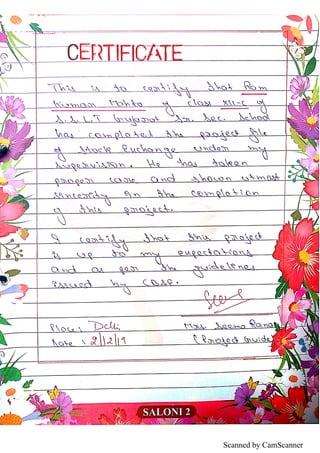 CERTIFICATE
This is to certify that Ram
Kumar Mahto of class XII-C of
S.S.L.T Gujarat Sr. Sec. School
has completed the project file
of Stock Exchange under my
supervision. He has taken
proper care and shown utmost
sincerity in the completion
of this project.
I certify that this project
is up to my expectations
and as per the guidelines
issued by CBSE.
Place: Delhi
Mrs Seema Rana
Date : 2/12/19
(Project Guide)
SALONI 2
Scanned by CamScanner